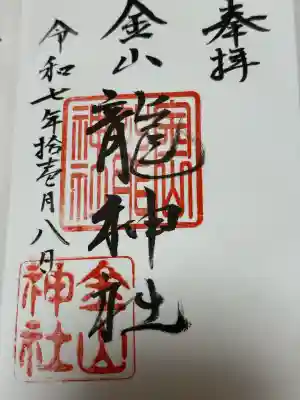 奉拝
金山龍神社
令和七年拾壱月八日
金山
神社